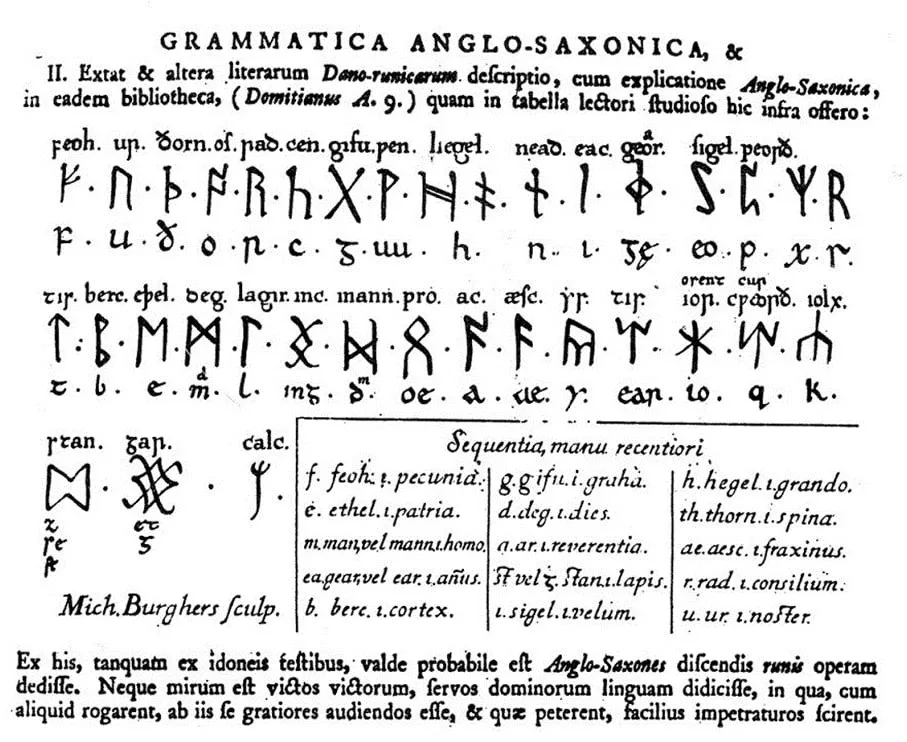 GRAMMATICA ANGLO-SAXONICA, &
II. Extat & altera literarum Dano-runicarum deſcriptio, cum explicatione Anglo-Saxonica,
in eadem bibliotheca, (Domitianus A. 9.) quam in tabella lectori ſtudioſo hic infra offero:
feoh. uꞃ. ðorn. oſ. ꞃað. cen. gifu. pen. hegel. nead. eac. geo^ar. ſigel. peorð.
ᚠ · ᚢ · ᚦ · ᚩ · ᚱ · ᚳ · ᚷ · ᚹ · ᚻ · ᚾ · ᛁ · ᛄ · ᛋ · ᛈ · ᛉ · ᚱ
f · u · ð · o · ꞃ · c · ᵹ · uu · h · n · ı · ᵹę · eo · p · x · ꞃ.
orent cur
tır. berc. eþel. deg. lagır. ınc. mann. pro. ac. æſc. ẏr. tır. ıoꞃ. cƿorð. ıolx.
ᛏ · ᛒ · ᛖ · ᛗ · ᛚ · ᛝ · ᛞ · ᛟ · ᚪ · ᚫ · ᚣ · ᛠ · ᛡ · ᛢ · ᛣ
d m
t · b · e · m · l · ınᵹ · ð · oe · a · ae · y · eaꞃ · ıo · q · k.
ꞅtan. ᵹaꞃ. calc.
ᛥ · ᚸ · ᛉ.
z et
ſe ᵹ
ſt
Mich. Burghers ſculp.
Sequentia, manu recentiori
f. feoh. ı. pecunia. g. gifu. i. gratia. h. hegel. ı. grando.
e. ethel. ı. patria. d. deg. ı. dies. th. thorn. i. spina.
m. man, vel mann. ı. homo. a. ar. ı. reverentia. ae. aesc. ı. fraxinus.
ea. gear, vel ear. ı. añus. ſt vel ᵹ. ſtan. ı. lapis. r. rad. ı. consilium.
b. berc. ı. cortex. ı. sigel. ı. velum. u. ur. ı. noſter.
Ex his, tanquam ex idoneis teſtibus, valde probabile eſt Anglo-Saxones diſcendis runis operam
dediſſe. Neque mirum eſt victos victorum, ſervos dominorum linguam didiciſſe, in qua, cum
aliquid rogarent, ab iis ſe gratiores audiendos eſſe, & quæ peterent, facilius impetraturos ſcirent.